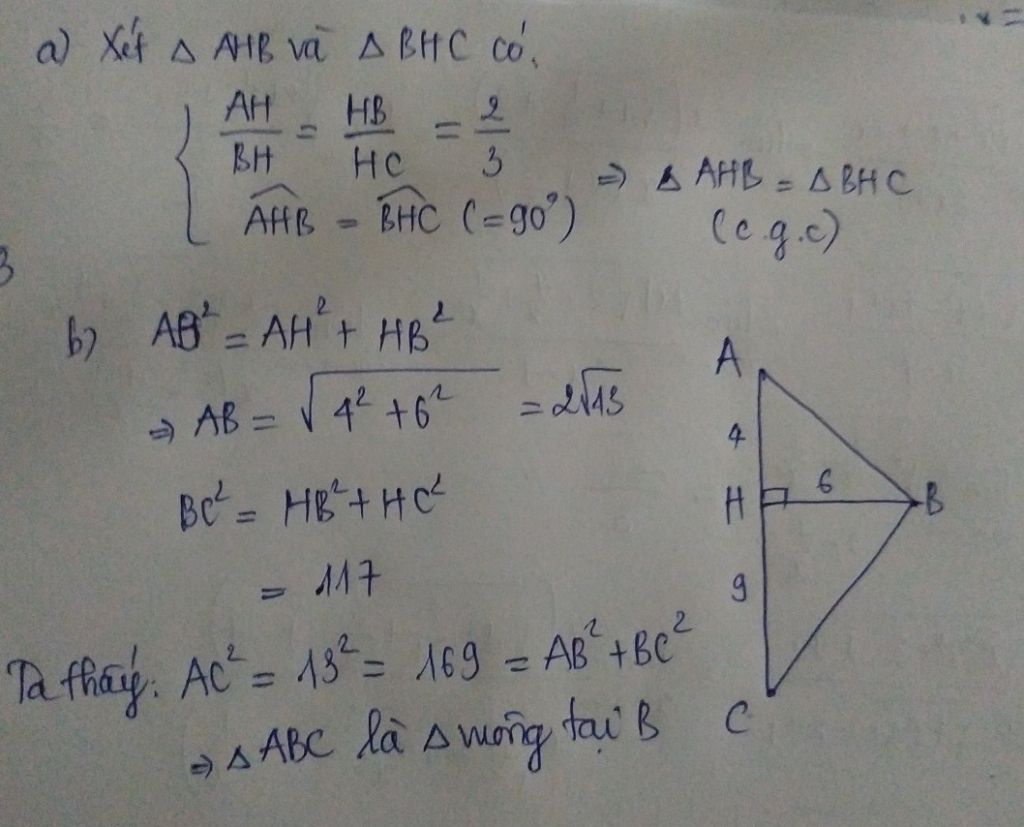 a) Xét Δ AHB và Δ BHC có.
AH/BH = HB/HC = 2/3
AHB = BHC (=90°) ⇒ Δ AHB = Δ BHC
(c.g.c)
b) AB² = AH² + HB²
⇒ AB = √(4² + 6²) = 2√13
BC² = HB² + HC²
= 117
Ta thấy: AC² = 13² = 169 = AB² + BC²
⇒ Δ ABC là Δ vuông tại B
A
4
H
6
B
9
C